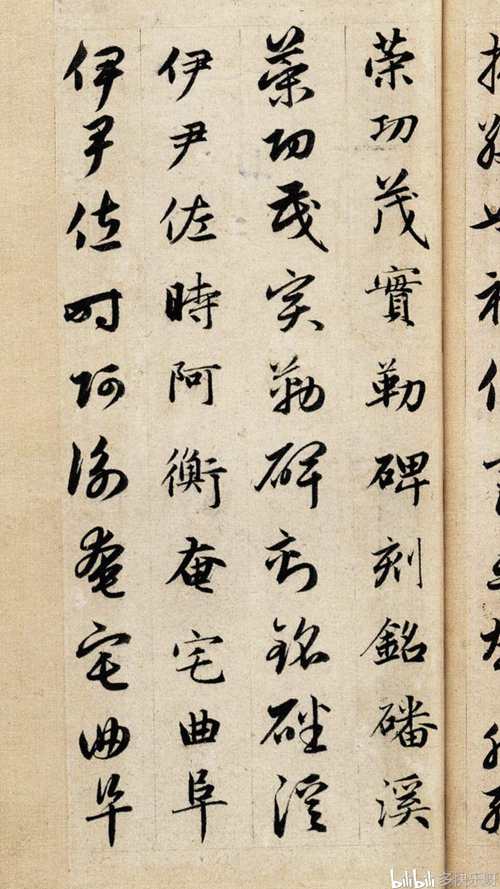 策功茂實勒碑刻銘磻溪
策功茂實勒碑刻銘磻溪
伊尹佐時阿衡奄宅曲阜
伊尹佐時阿衡奄宅曲阜
bilibili 多快乐呀